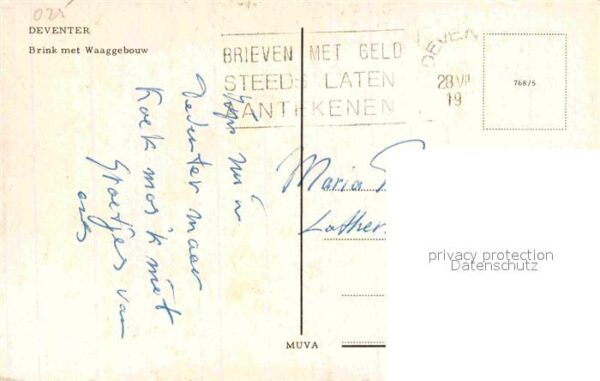 025
DEVENTER
Brink met Waaggebouw
BRIEVEN MET GELD
STEEDS LATEN
AANTEKENEN
DEVEN
28 VII
19
768/5
zijn nu in
Deventer maar
Koek mos ik niet
Groetjes van
ons
Maria
Lather
privacy protection
Datenschutz
MUVA